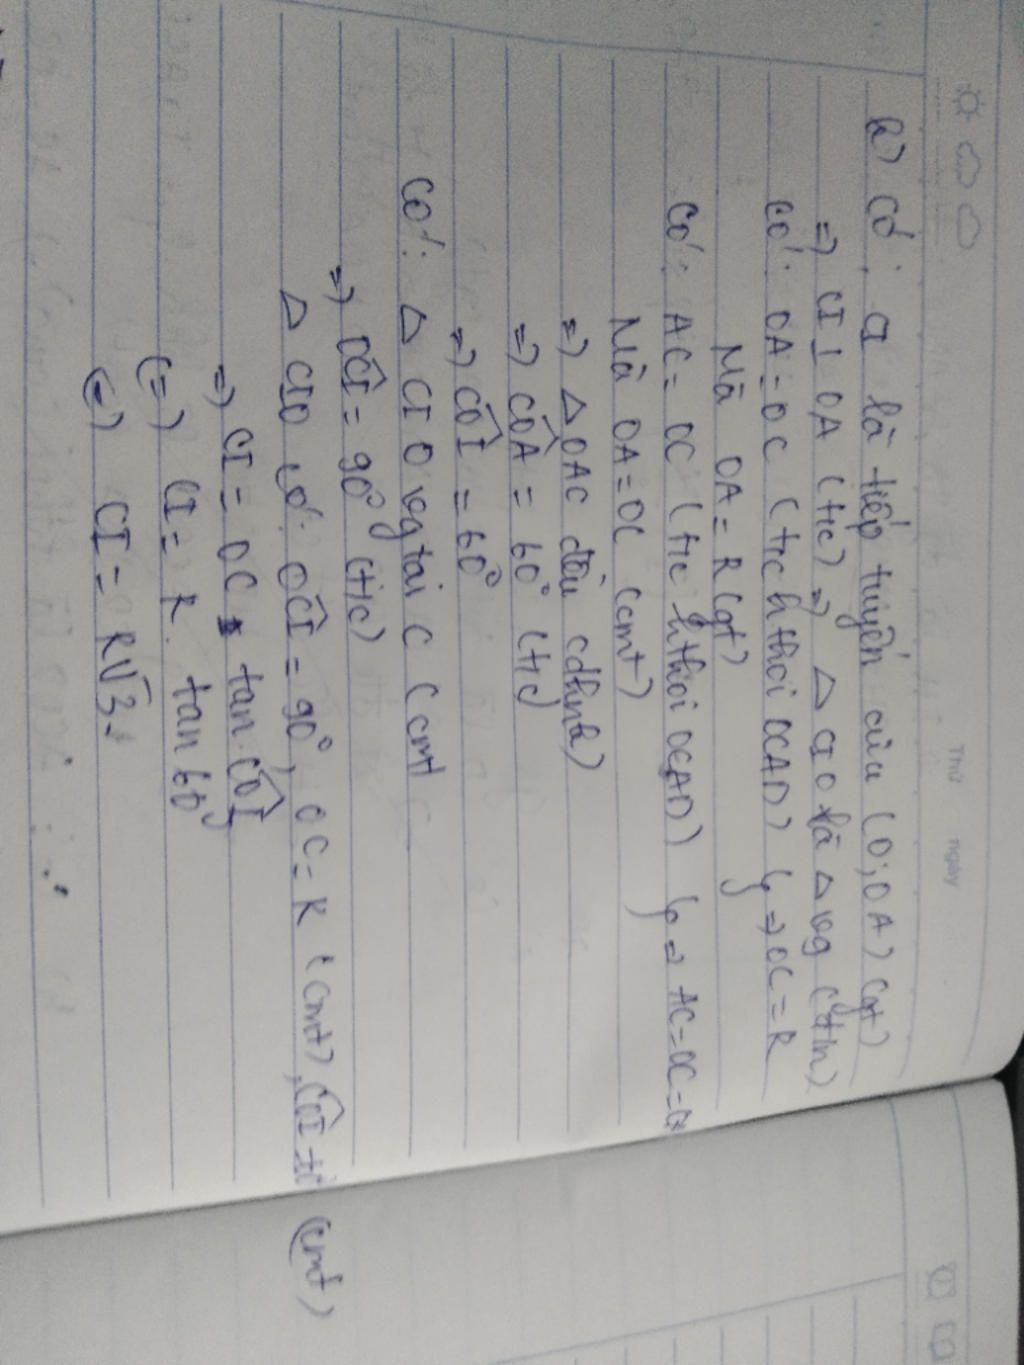 Thứ ngày
b) Có: CI là tiếp tuyến của (O;OA) (gt)
=> CI ⊥ OA (t/c) => △ CIO là △ vg (đ/n)
Có: OA = OC (t/c hthoi OCAD)
=> OC = R
Mà OA = R (gt)
Có: AC = OC (t/c hthoi OCAD)
=> AC = OC = O
Mà OA = OC (cmt)
=> △ OAC đều (dhnb)
=> CÔA = 60° (t/c)
=> CÔI = 60°
Có: △ CIO vg tại C (cmt
=> OĈI = 90° (t/c)
△ CIO có: OĈI = 90°, OC = R (cmt), CÔI = (cmt)
=> CI = OC. tan CÔI
(=) CI = R. tan 60°
(=) CI = R√3.